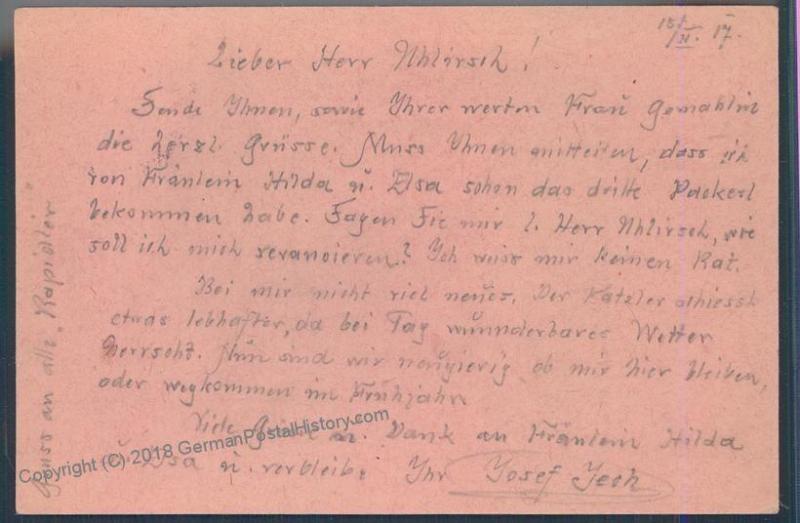 15/II. 17.
Lieber Herr Uhlirsch!
Sende Ihnen, sowie Ihrer werten Frau Gemahlin
die herzl. Grüsse. Muss Ihnen mitteilen, dass ich
von Fräulein Hilda u. Elsa schon das dritte Packerl
bekommen habe. Sagen Sie mir l. Herr Uhlirsch, wie
soll ich mich revancieren? Ich weiss mir keinen Rat.
Bei mir nicht viel neues. Der Katzler schiesst
etwas lebhafter, da bei Tag wunnderbares Wetter
herrscht. Nun sind wir neugierig ob mir hier bleiben,
oder wegkommen im Frühjahr.
Viele Grüsse u. Dank an Fräulein Hilda
u. Elsa u. verbleibe Ihr Josef Jech
Gruss an alle "Rapidler"
Copyright (C) 2018 GermanPostalHistory.com